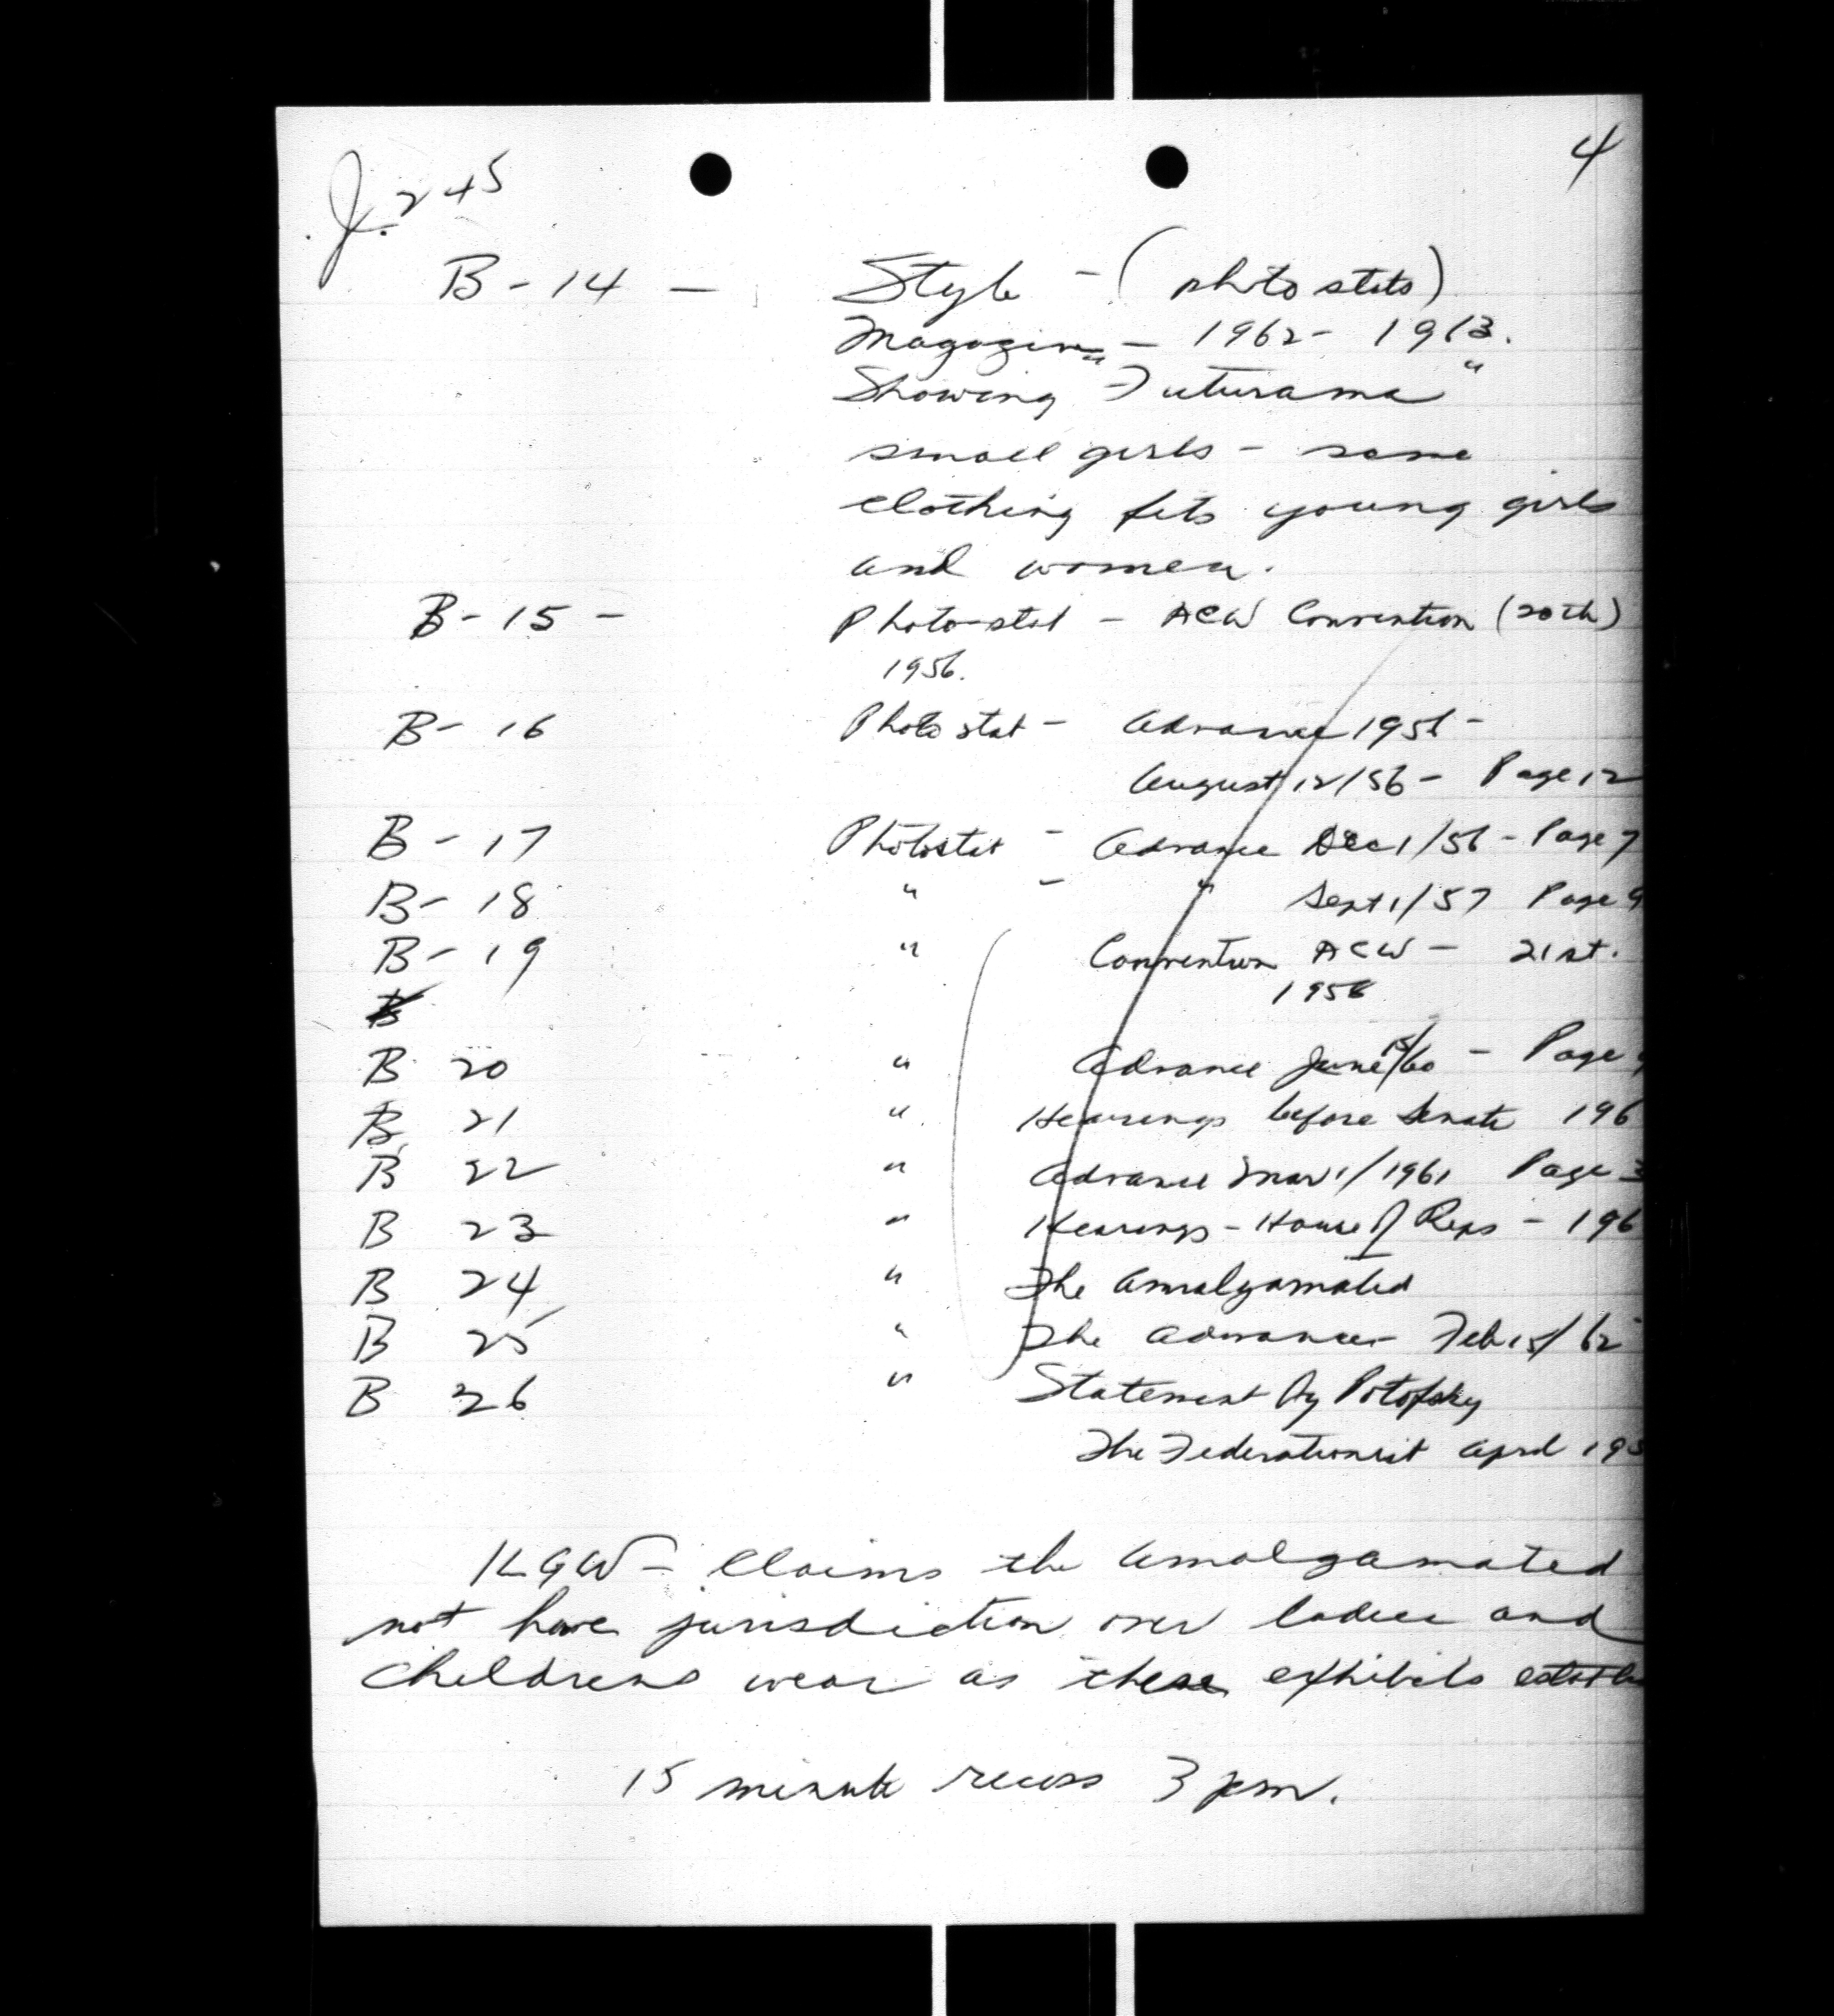 4
J. 245
B - 14 - Style - (photo stats)
Magazine - 1962 - 1963.
Showing "Futurama"
small girls - same
clothing fits young girls
and women.
B - 15 - Photo-stat - ACW Convention (20th)
1956.
B - 16 Photo stat - Advance 1956 -
August 12/56 - Page 12
B - 17 Photostat - Advance Dec 1/56 - Page 7
B - 18 " - " Sept 1/57 Page 9
B - 19 " Convention ACW - 21st.
1958
B 20 " Advance June 15/60 - Page
B 21 " Hearings before Senate 196
B 22 " Advance Mar 1/1961 Page 3
B 23 " Hearings - House of Reps - 196
B 24 " The Amalgamated
B 25 " The Advance - Feb 15/62
B 26 " Statement by Potofsky
The Federationist April 195
ILGW - Claims the Amalgamated
not have jurisdiction over ladies and
childrens wear as these exhibits
15 minute recess 3 pm.